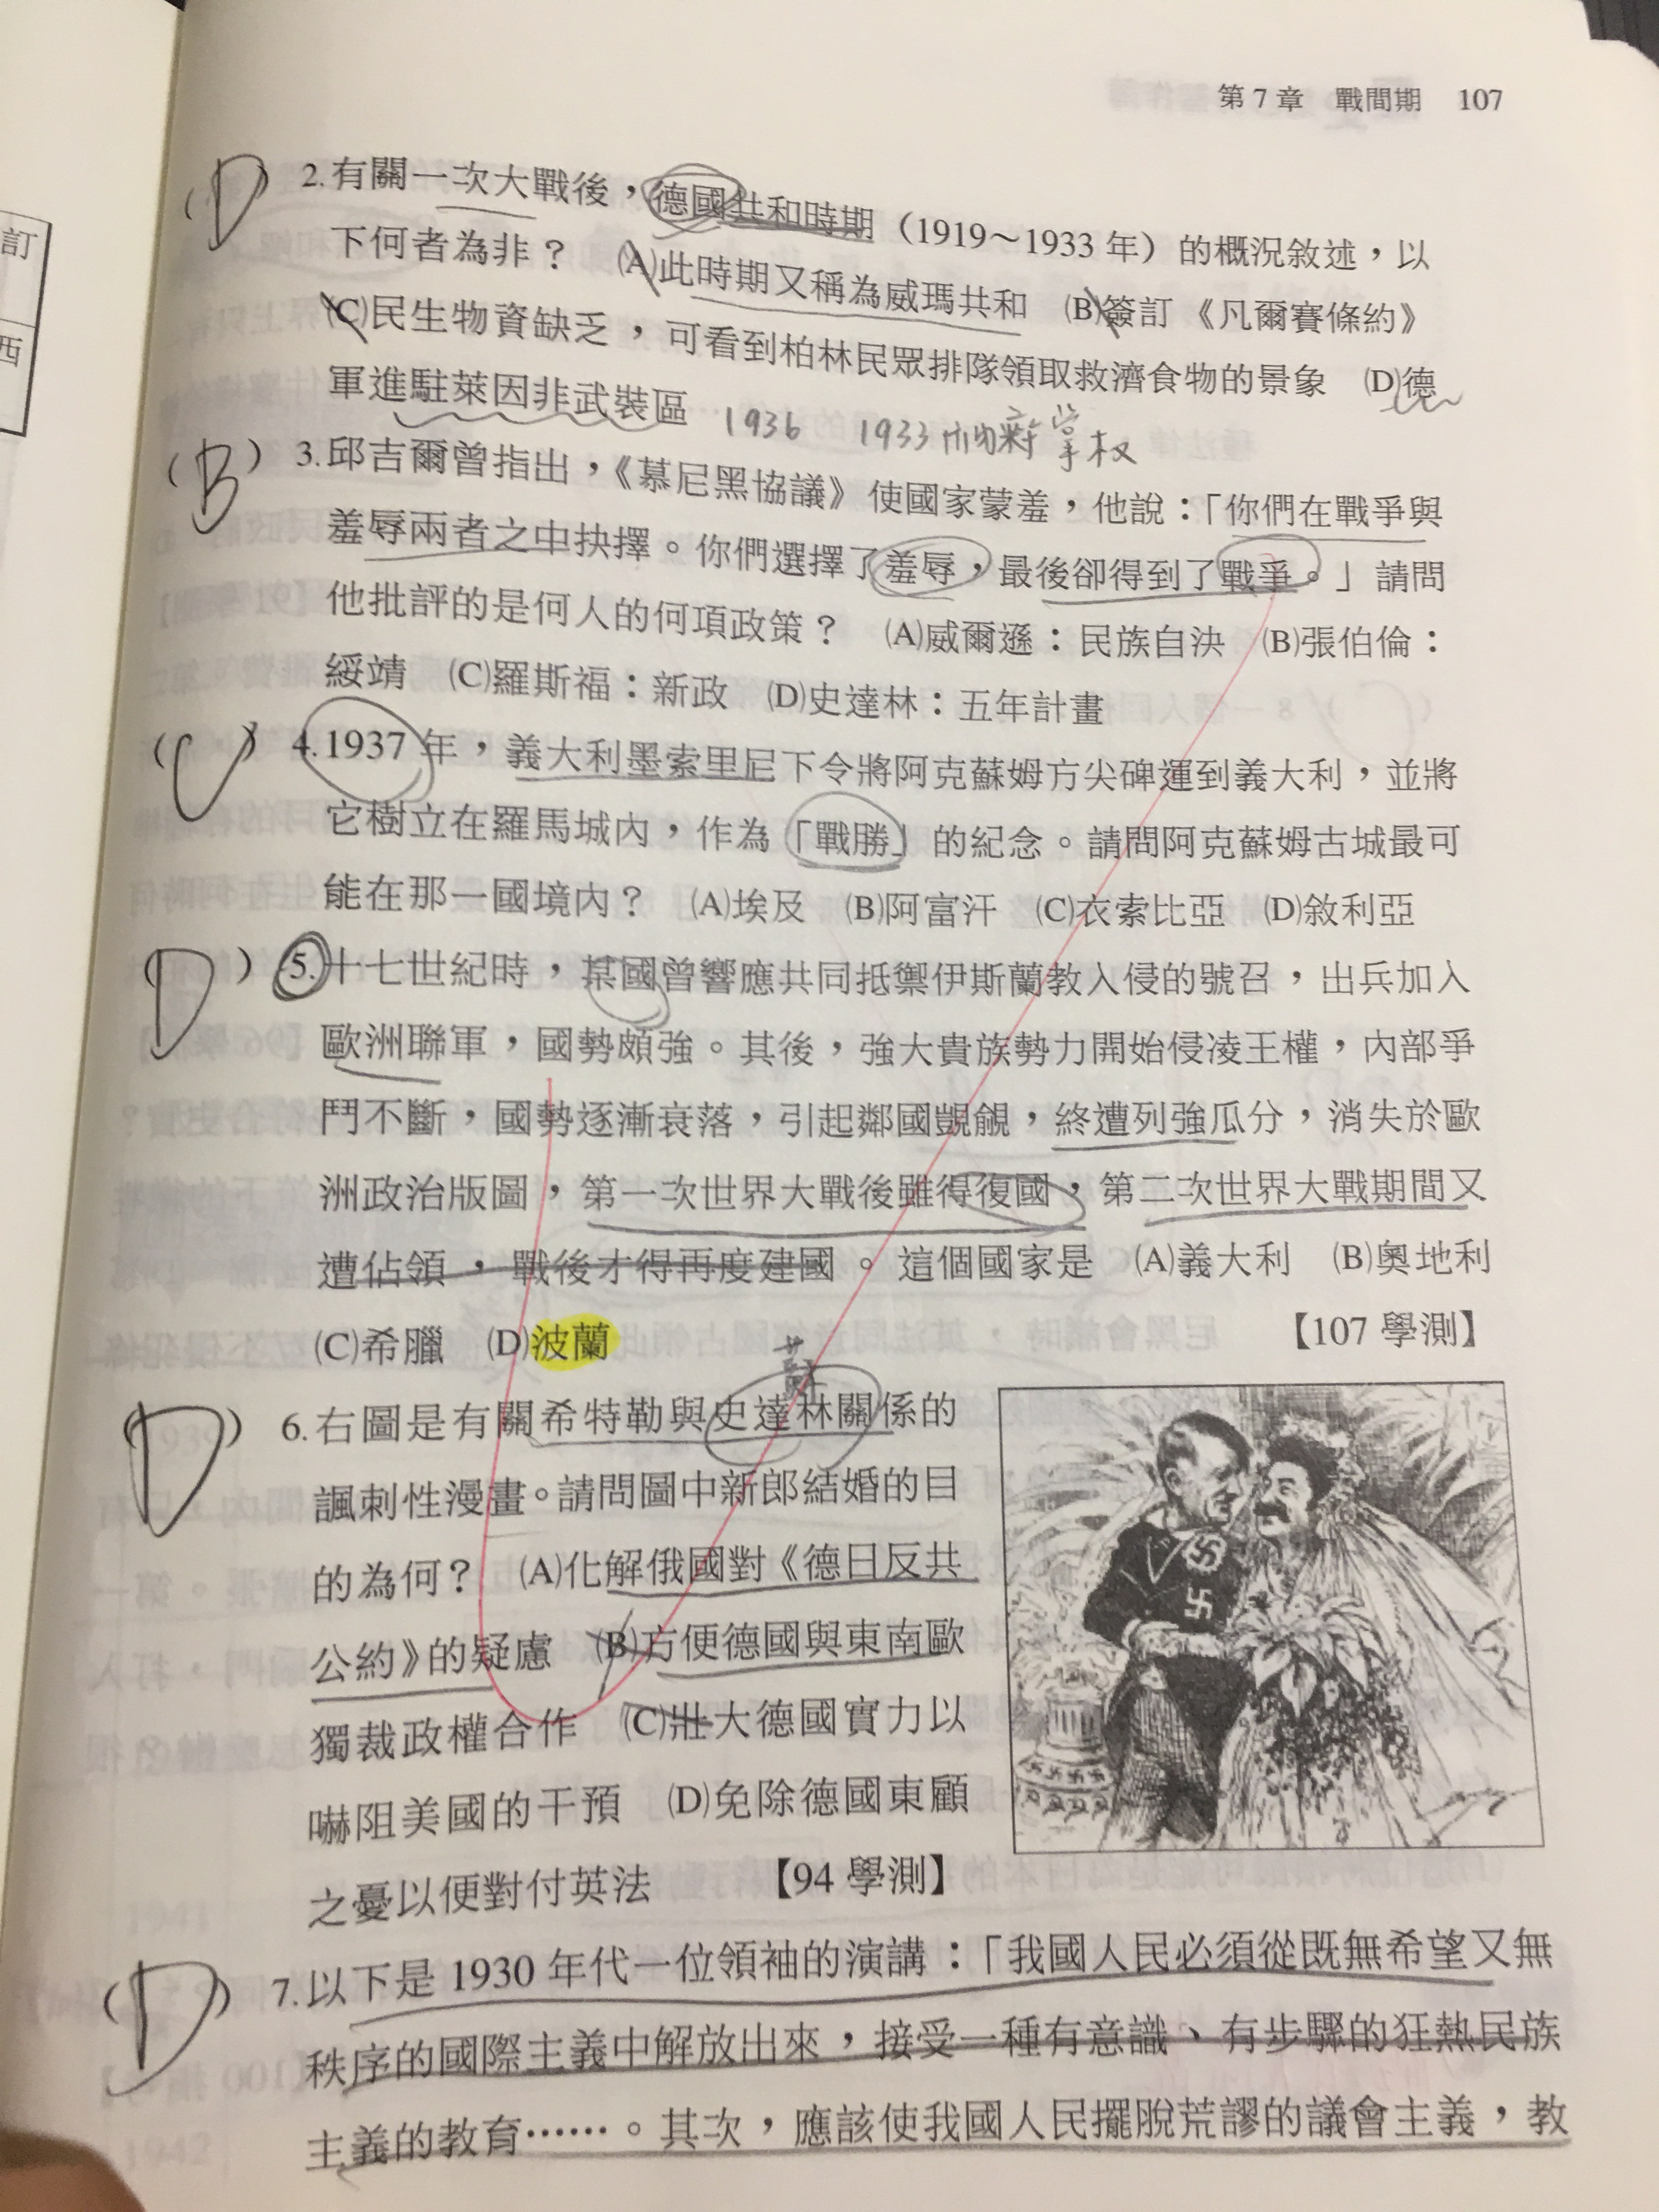 第 7 章 戰間期 107
訂
西
(D) 2.有關一次大戰後，德國共和時期（1919～1933 年）的概況敘述，以
下何者為非？ (A)此時期又稱為威瑪共和 (B)簽訂《凡爾賽條約》
(C)民生物資缺乏，可看到柏林民眾排隊領取救濟食物的景象 (D)德
軍進駐萊因非武裝區 1936 1933 掌权
(B) 3.邱吉爾曾指出，《慕尼黑協議》使國家蒙羞，他說：「你們在戰爭與
羞辱兩者之中抉擇。你們選擇了羞辱，最後卻得到了戰爭。」請問
他批評的是何人的何項政策？ (A)威爾遜：民族自決 (B)張伯倫：
綏靖 (C)羅斯福：新政 (D)史達林：五年計畫
(C) 4.1937 年，義大利墨索里尼下令將阿克蘇姆方尖碑運到義大利，並將
它樹立在羅馬城內，作為「戰勝」的紀念。請問阿克蘇姆古城最可
能在那一國境內？ (A)埃及 (B)阿富汗 (C)衣索比亞 (D)敘利亞
(D) 5.十七世紀時，某國曾響應共同抵禦伊斯蘭教入侵的號召，出兵加入
歐洲聯軍，國勢頗強。其後，強大貴族勢力開始侵凌王權，內部爭
鬥不斷，國勢逐漸衰落，引起鄰國覬覦，終遭列強瓜分，消失於歐
洲政治版圖，第一次世界大戰後雖得復國，第二次世界大戰期間又
遭佔領，戰後才得再度建國。這個國家是 (A)義大利 (B)奧地利
(C)希臘 (D)波蘭 【107 學測】
蘇
(D) 6.右圖是有關希特勒與史達林關係的
諷刺性漫畫。請問圖中新郎結婚的目
的為何？ (A)化解俄國對《德日反共
公約》的疑慮 (B)方便德國與東南歐
獨裁政權合作 (C)壯大德國實力以
嚇阻美國的干預 (D)免除德國東顧
之憂以便對付英法 【94 學測】
(D) 7.以下是 1930 年代一位領袖的演講：「我國人民必須從既無希望又無
秩序的國際主義中解放出來，接受一種有意識、有步驟的狂熱民族
主義的教育……。其次，應該使我國人民擺脫荒謬的議會主義，教